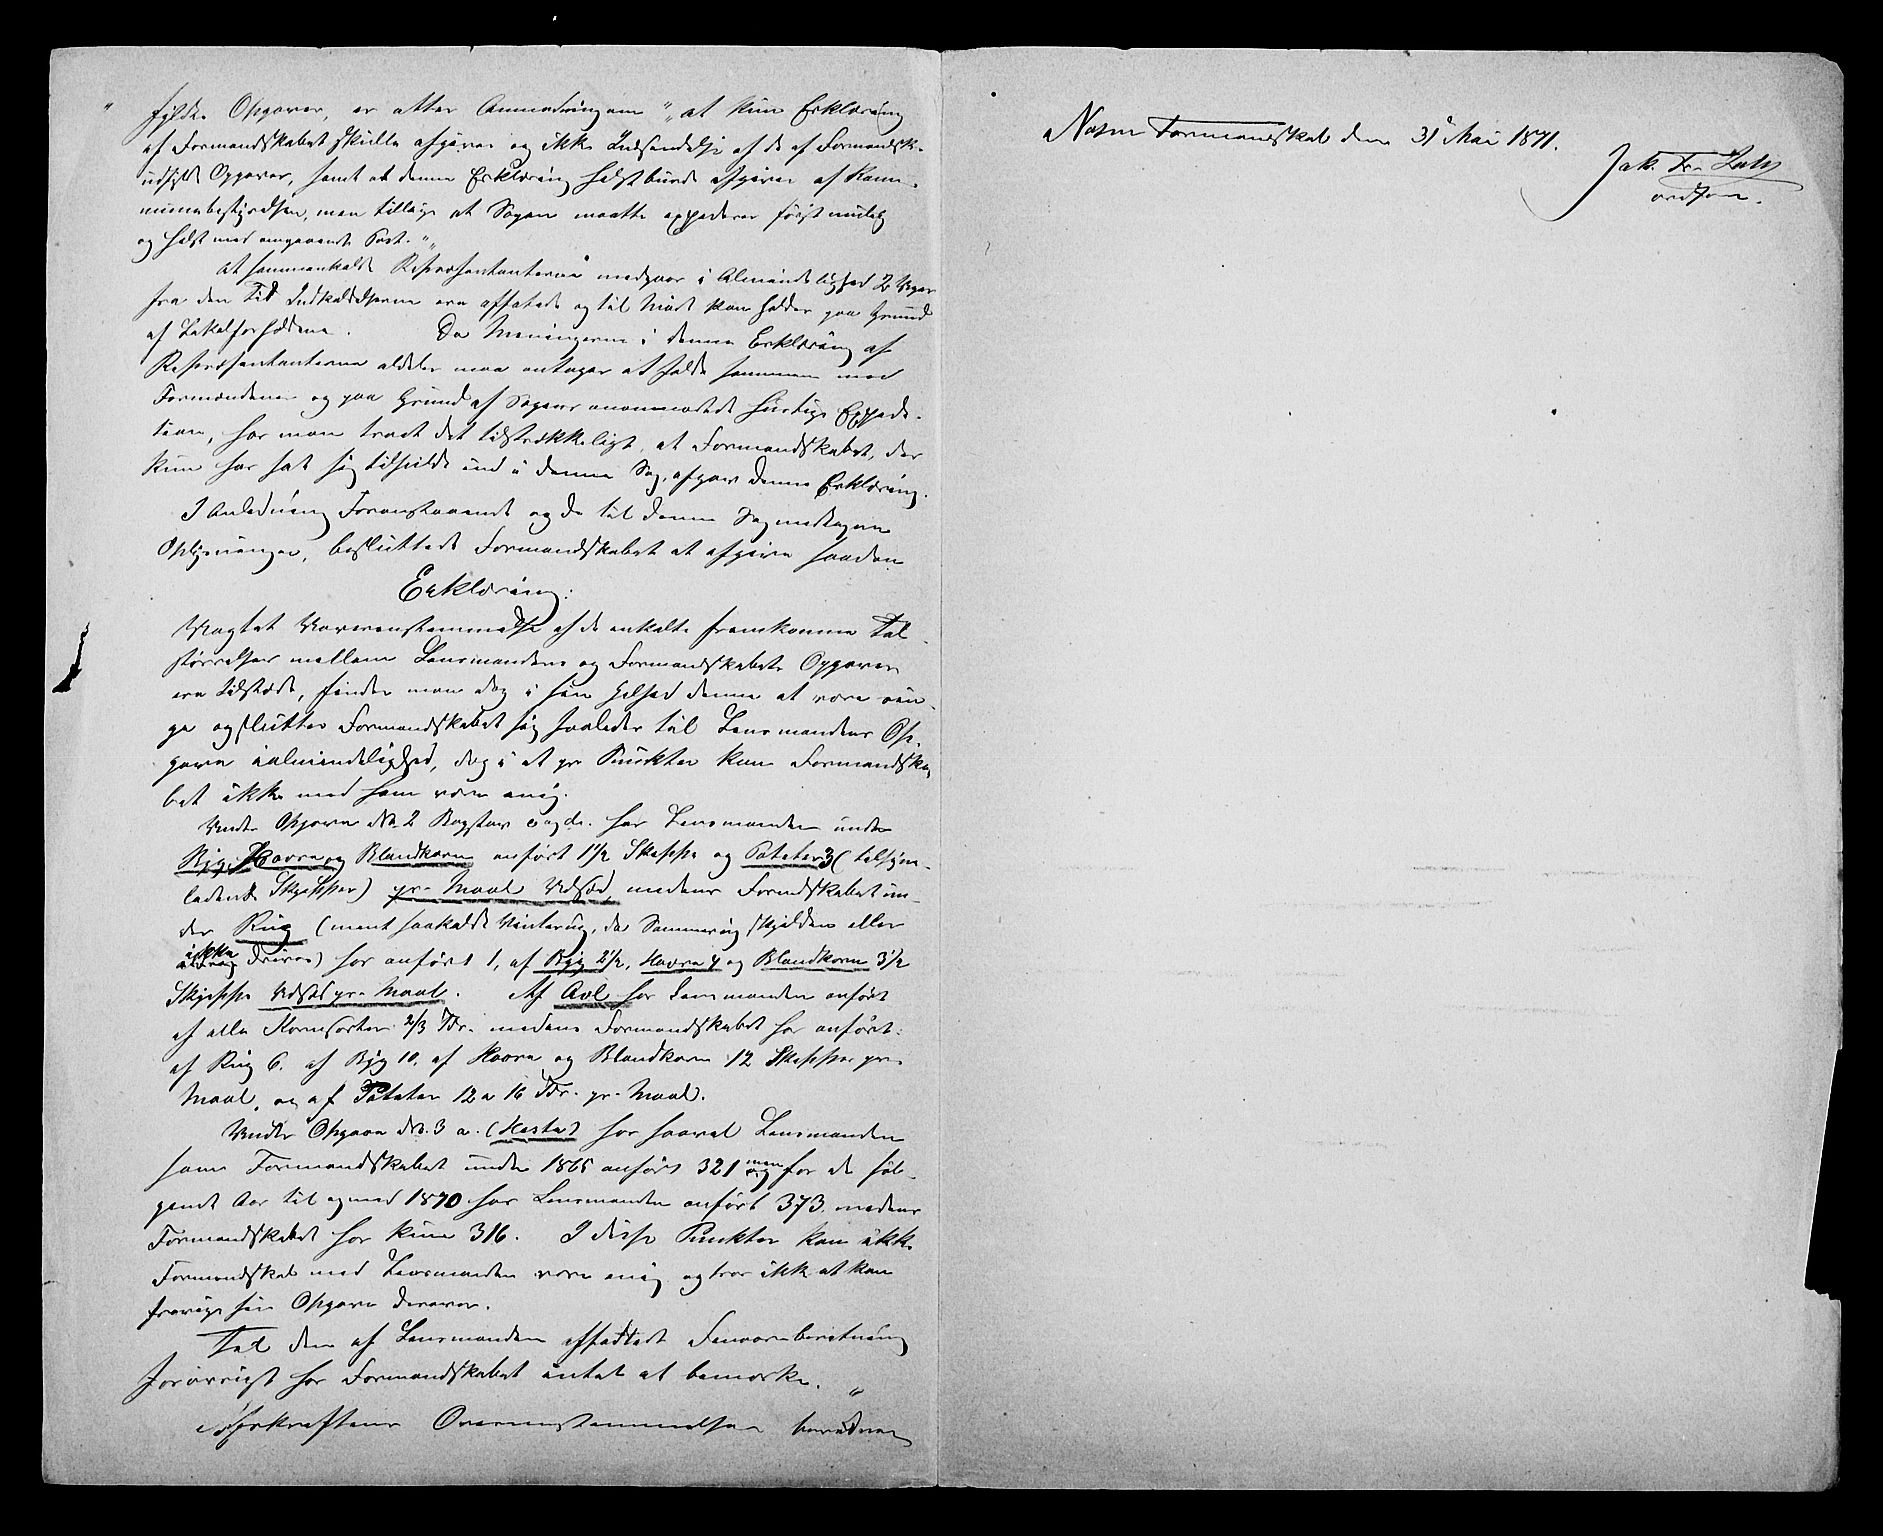 " fyldte Opgaver, er atter Anmodningen "at kun Erklæring
af Formandskabet skulle afgives og ikke Indsendelse af de af Formandsk.
udfyldte Opgaver, samt at denne Erklæring helst burde afgives af Kom-
munebestyrelsen, men tillige at Sagen maatte expederes først mulig
og helst med omgaaende Post."
At sammenkalde Repræsentanterne medgaar i Almindelighed 2 Uger
fra den Tid Indkaldelserne ere affattede og til Møde kan holdes paa Grund
af Lokalforholdene. Da Meningerne i denne Erklæring af
Repræsentanterne aldeles maa antages at falde sammen med
Formændenes og paa Grund af Sagens anmodede hurtige Expedi-
tion, har man troet det tilstrækkeligt, at Formandskabet, der
kun har sat sig tilfulde ind i denne Sag, afgav denne Erklæring.
I Anledning Foranstaaende og de til denne Sag medtagne
Oplysninger, besluttede Formandskabet at afgive saadan
Erklæring:
Uagtet Uoverensstemmelse af de enkelte fremkomne Tal-
størrelser mellem Lensmandens og Formandskabets Opgaver
ere tilstede, finder man dog i sin Helhed denne at være rin-
ge og slutter Formandskabet sig saaledes til Lensmandens Op-
gave i almindelighed, dog i et pr Punkter kan Formandska-
bet ikke med ham være enig.
Under Opgave No. 2 Bogstav c og d. har Lensmanden under
Byg, Havre og Blandkorn anført 1 1/2 Skeppe og Poteter 3 ( tilsyne-
ladende Skjepper) pr. Maal Udsæd, medens Formdskabet un-
der Rug (ment saakaldt Vinterrug, da Sommerrug sjelden eller
ikke drives) har anført 1, af Byg 2 1/2, Havre 4 og Blandkorn 3 1/2
Skjeppe Udsæd pr. Maal. Af Avl har Lensmanden anført
af alle Kornsorter 2/3 Tdr. medens Formandskabet har anført:
af Rug 6. af Byg 10. af Havre og Blandkorn 12 Skepper pr.
Maal, og af Poteter 12 a 16 Tdr. pr. Maal.
Under Opgave No. 3 a. (Heste) har saavel Lensmanden
som Formandskabet under 1865 anført 321 men for de føl-
gende Aar til og med 1870 har Lensmanden anført 373. medens
Formandskabet har kun 316. I disse Punkter kan ikke
Formandskab med Lensmanden være enig og tror ikke at kan
fravige sin Opgave derover.
Til den af Lensmanden affattede Femaarsberetning
forøvrigt har Formandskabet intet at bemærke."
Afskriftens Overensstemmelse bevidnes
Næsne Formandskab den 31 Mai 1871.
Jak. Fr.
ordfører.